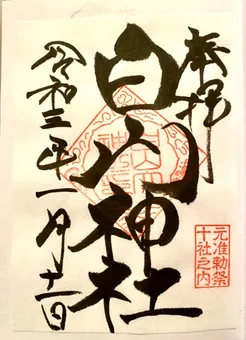 奉拝
白山神社
令和三年一月十一日
元准勅祭
十社之内